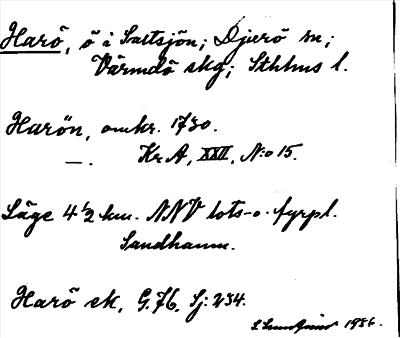 Harö, ö i Saltsjön; Djurö sn;
Värmdö skg; Sthlms l.
Harön, omkr. 1730.
—. Kr A, XXII, N:o 15.
Läge 4 1/2 km. NNV lots- o. fyrpl.
Sandhamn.
Harö ek, G.76. Sj: 234.
1936.